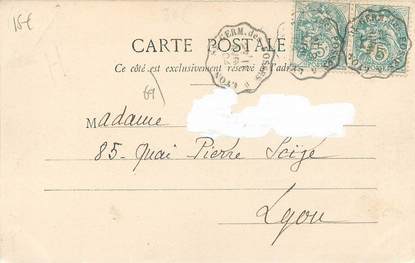 15€
CARTE POSTALE
Ce côté est exclusivement réservé à l'adresse
69
Madame
85 - Quai Pierre Scize
Lyon